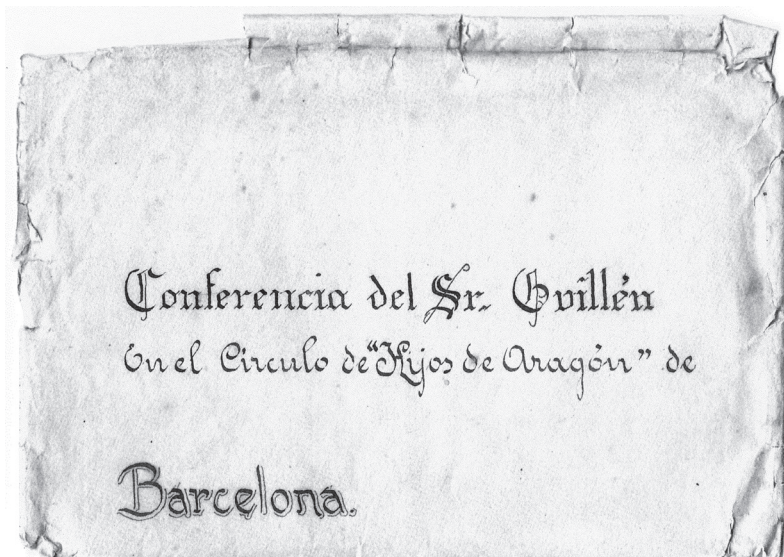 Conferencia del Sr. Guillén
En el Circulo de "Hijos de Aragón" de
Barcelona.